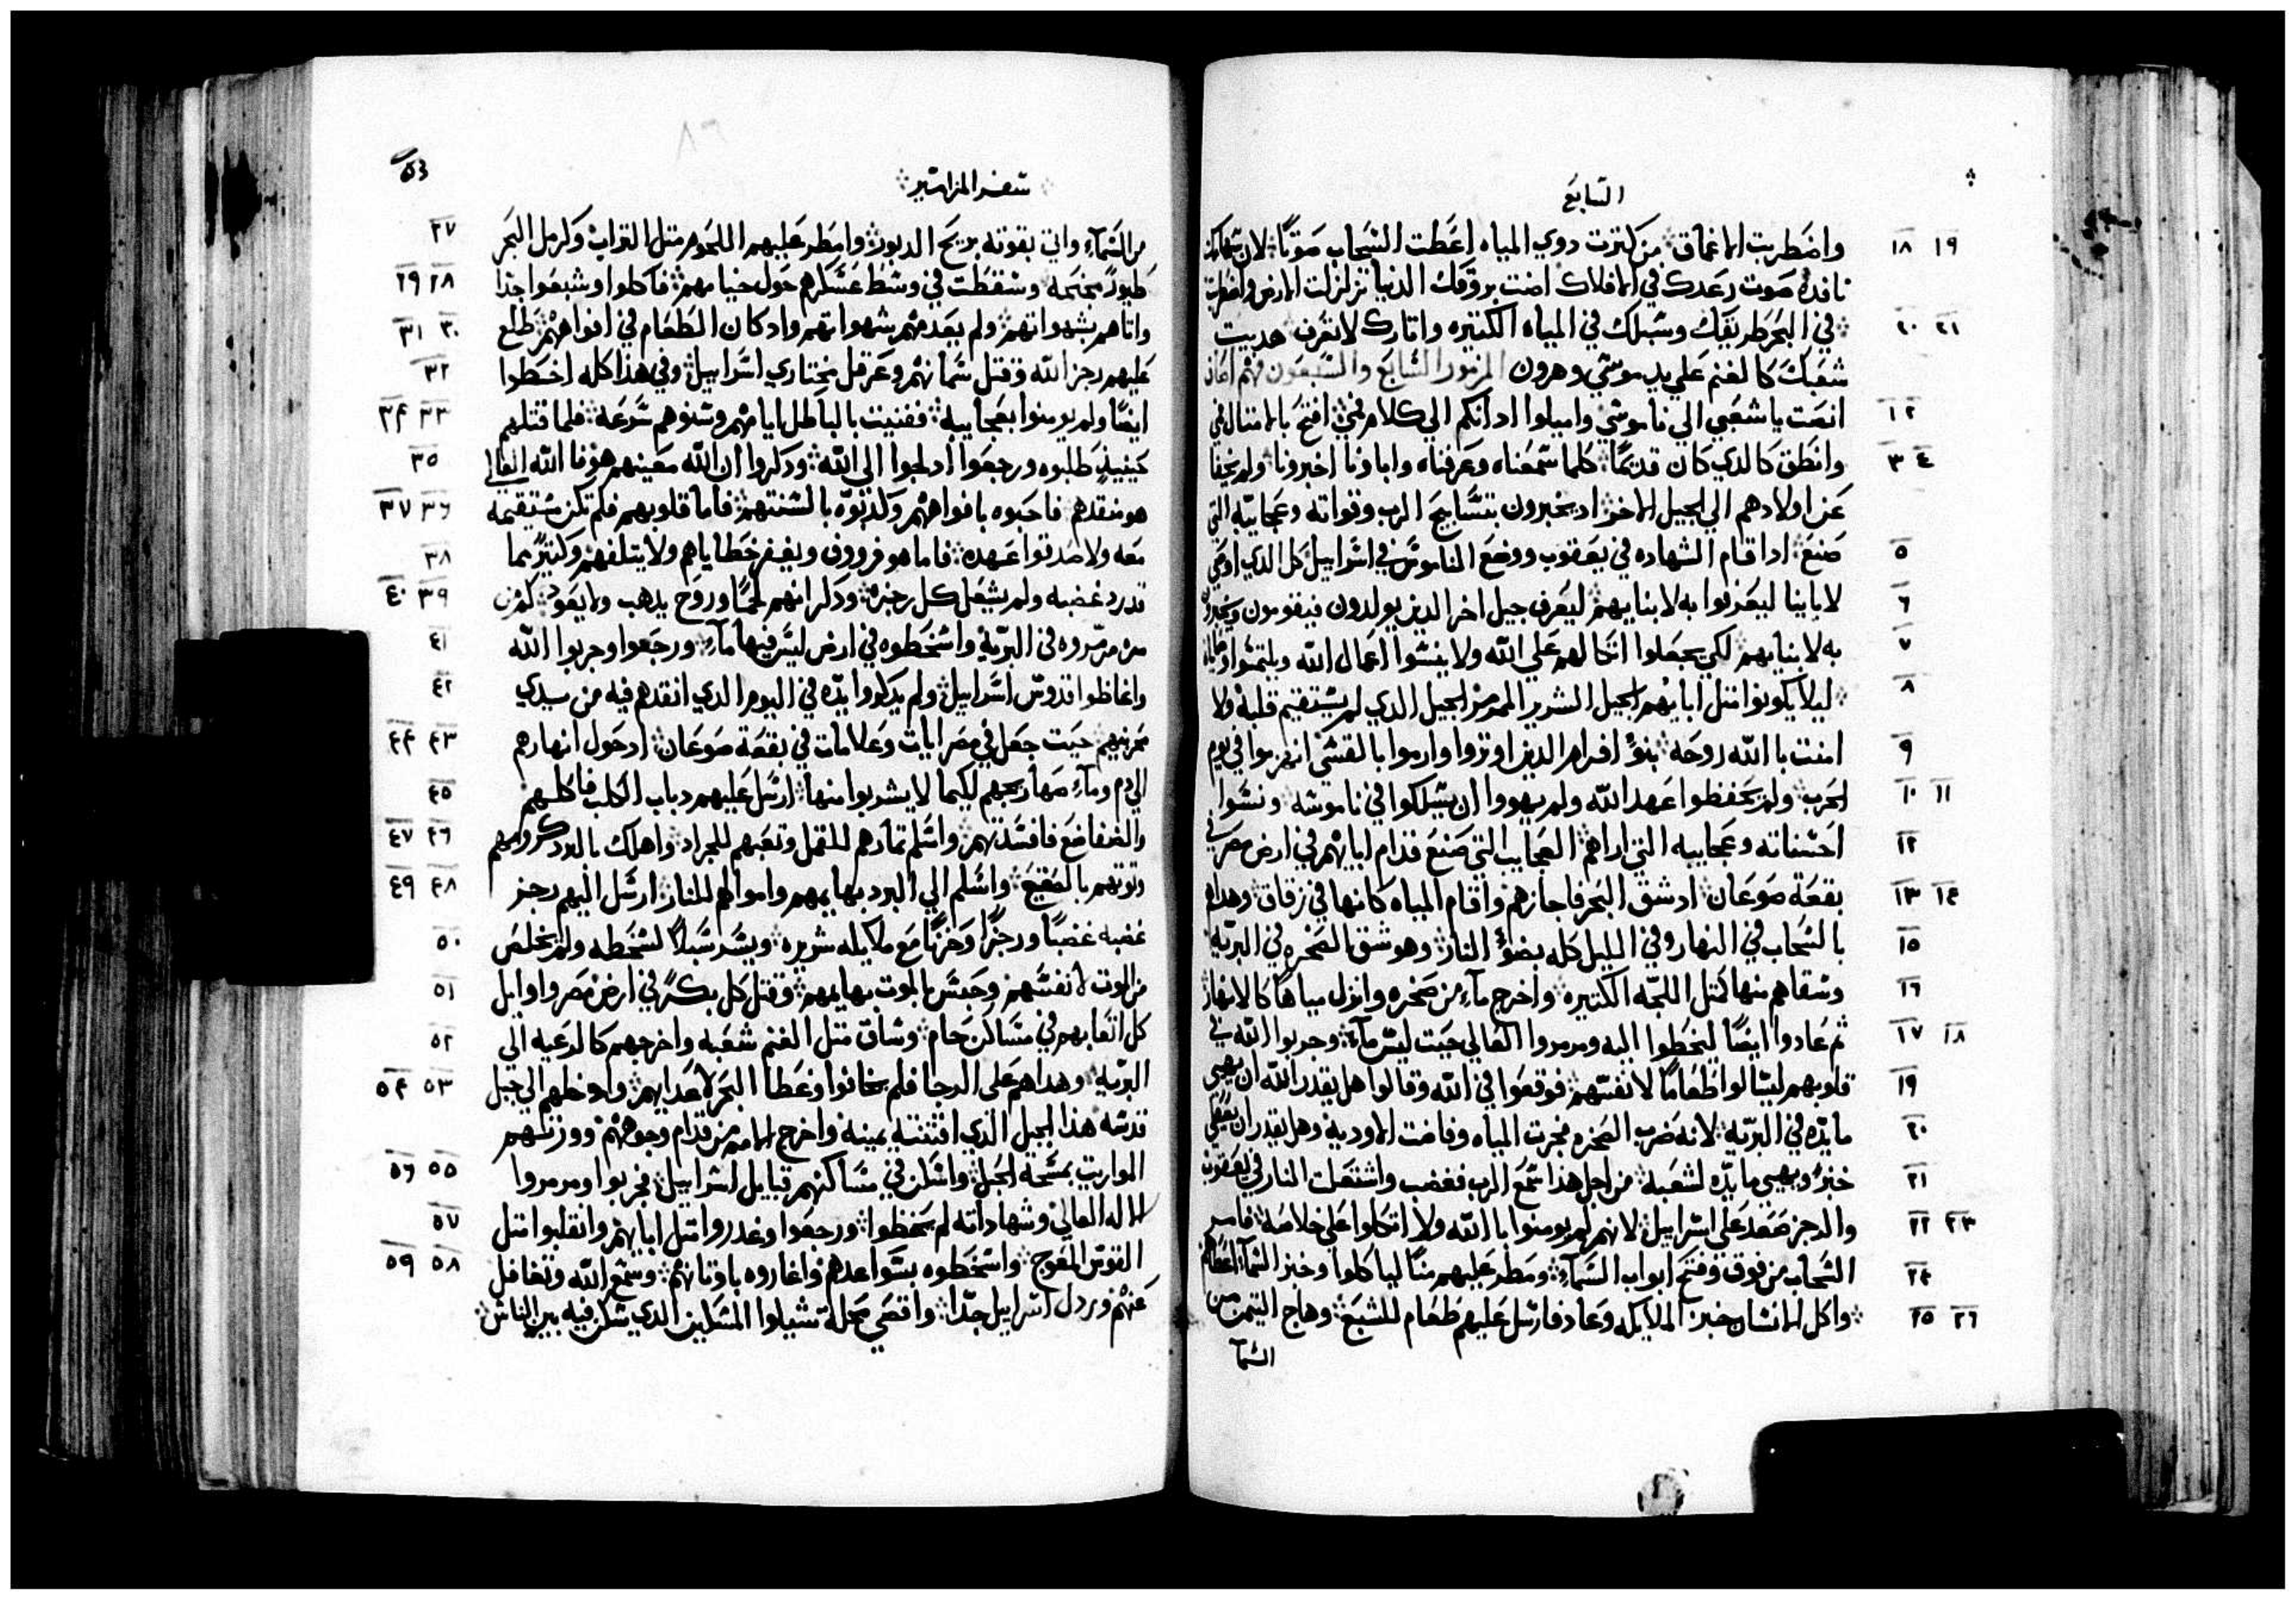 السابع
١٩ ١٨ واضطربت الاعماق من كترت دوي المياه اعطت السحاب صوتًا لان سهامك
نافده صوت رعدك في الافلاك اضت بروقك الدنيا تزلزلت الارض واضطربت
٢١ ٢٠ في البحر طريقك وسبلك في المياه الكتيره واتارك لا تعرف هديت
شعبك كالغنم علي يد موسي وهرون المزمور السابع والسبعون
١ ٢ انصت يا شعبي الي ناموسي واميلوا ادانكم الي كلام فمي افتح بالامتال في
٤ ٣ وانطق كالدي كان قديمًا كلما سمعناه وعرفناه واباونا اخبرونا ولم يخفا
عن اولادهم الي الجيل الاخر اد يخبرون بتسابيح الرب وقواته وعجايبه التي
٥ صنع ادا قام الشهاده في يعقوب ووضع الناموس في اسراييل كل الدي اوصي
٦ لاباينا ليعرفوا به لابنايهم ليعرف جيل اخر الدين يولدون فيقومون ويخبرون
٧ به لابنايهم لكي يجعلوا اتكالهم علي الله ولا ينسوا اعمال الله ويلتمسوا وصاياه
٨ ليلا يكونوا متل ابايهم الجيل الشرير الممرمر الجيل الدي لم يستقيم قلبه ولا
٩ امنت بالله روحه بنوُ افرام الدين اوتروا وارموا بالقسي انهزموا في يوم
١١ ١٠ الحرب ولم يحفظوا عهد الله ولم يهووا ان يسلكوا في ناموسه ونسوا
١٢ احسناته وعجايبه التي اراهم العجايب التي صنع قدام ابايهم في ارض مصر في
١٤ ١٣ بقعة صوعان ادشق البحر فاجازهم واقام المياه كانها في زقاق وهداهم
١٥ بالسحاب في النهار وفي الليل كله بضوُ النار وهو شق الصخره في البريه
١٦ وسقاهم منها كمتل اللجه الكتيره واخرج مآء من صخره وانزل مياهًا كالانهار
١٨ ١٧ تم عادوا ايضًا ليخطوا اليه ومرمروا العالي حيت ليس مآء وجربوا الله في
١٩ قلوبهم ليسالوا طعامًا لانفسهم فوقعوا في الله وقالوا هل يقدر الله ان يهيي
٢٠ مايده في البريه لانه ضرب الصخره فجرت المياه وفاضت الاوديه وهل يقدر ان يعطي
٢١ خبزًا ويهيي مايده لشعبه من اجل هذا سمع الرب فغضب واشتعلت النار في يعقوب
٢٣ ٢٢ والرجز صعد علي اسراييل لانهم لم يومنوا بالله ولا اتكلوا علي خلاصه فامر
٢٤ السحاب من فوق وفتح ابواب السمآء ومطر عليهم منًا لياكلوا وخبز السمآء اعطاهم
٢٦ ٢٥ واكل الانسان خبز الملايكه وعاد فارسل عليهم طعام للشبع وهاج التيمن من
السمآ
سفر المزامير
٢٧ من السمآء واتي بقوته بريح الدبور وامطر عليهم اللحوم متل التراب وكرمل البحر
٢٨ ٢٩ طيورً مجنحه وسقطت في وسط عسكرهم حول خيامهم فاكلوا وشبعوا جدًا
٣٠ ٣١ واتاهم بشهواتهم ولم يعدمهم شهواتهم واد كان الطعام في افواههم طلع
٣٢ عليهم رجز الله وقتل سمانهم وعرقل مختاري اسراييل وفي هذا كله اخطوا
٣٣ ٣٤ ايضًا ولم يومنوا بعجايبه ففنيت بالباطل ايامهم وسنوهم بسرعه فلما قتلهم
٣٥ حينيدٍ طلبوه ورجعوا ادلجوا الي الله ودكروا ان الله معينهم هو فا الله العالي
٣٦ ٣٧ هو منقدهم فاحبوه بافواههم وكذبوه بالسنتهم فاما قلوبهم فلم تكن مستقيمه
٣٨ معه ولا صدقوا عهده فاما هو فرووف ويغفر خطاياهم ولا يتلفهم وكتيرً مما
٣٩ ٤٠ قدرد غضبه ولم يشعل كل رجزه ودكر انهم لحمًا وروح يدهب ولا يعود كم من
٤١ من مرمروه في البريه واسخطوه في ارض ليس فيها مآء ورجعوا وجربوا الله
٤٢ واغاظوا قدوس اسراييل ولم يدكروا يده في اليوم الدي انقدهم فيه من يدي
٤٣ ٤٤ محزنيهم حيت جعل في مصر ايات وعلامات في بقعة صوعان ادحول انهارهم
٤٥ الي دم ومآء صهاريجهم لكيما لا يشربوا منها ارسل عليهم دباب الكلب فاكلهم
٤٦ ٤٧ والضفادع فافسدتهم واسلم تمارهم للقمل وتعبهم للجراد واهلك بالبرد كرومهم
٤٨ ٤٩ وتوتهم بالصقيع واسلم الي البرد بهايمهم واموالهم للنار ارسل اليهم رجز
٥٠ غضبه غضبًا ورجزًا وحزنًا مع ملايكه شريره ويسر سبلاً لسخطه ولم يخلص
٥١ من الموت لانفسهم وحبس بالموت بهايمهم وقتل كل بكرً في ارض مصر واوايل
٥٢ كل اتعابهم في مساكن حام وساق متل الغنم شعبه واخرجهم كالرعيه الي
٥٣ ٥٤ البريه وهداهم علي الرجا فلم يخافوا وغطا البحر لاعدايهم وادخلهم الي جبل
قدسه هذا الجبل الذي اقتنته يمينه واخرج الامم من قدام وجوههم وورتهم
٥٥ ٥٦ المواريت بمسحة الحبل واسكن في مساكنهم قبايل اسراييل فجربوا ومرمروا
٥٧ الاله العالي وشهاداته لم يحفظوا ورجعوا وغدروا متل ابايهم وانقلبوا متل
٥٨ ٥٩ القوس المعوج واسخطوه بسواعدهم واغاروه باوتانهم وسمع الله وتغافل
عنهم وردل اسراييل جدًا واقصي محلة شيلوا المسكن الدي سكن فيه بين الناس